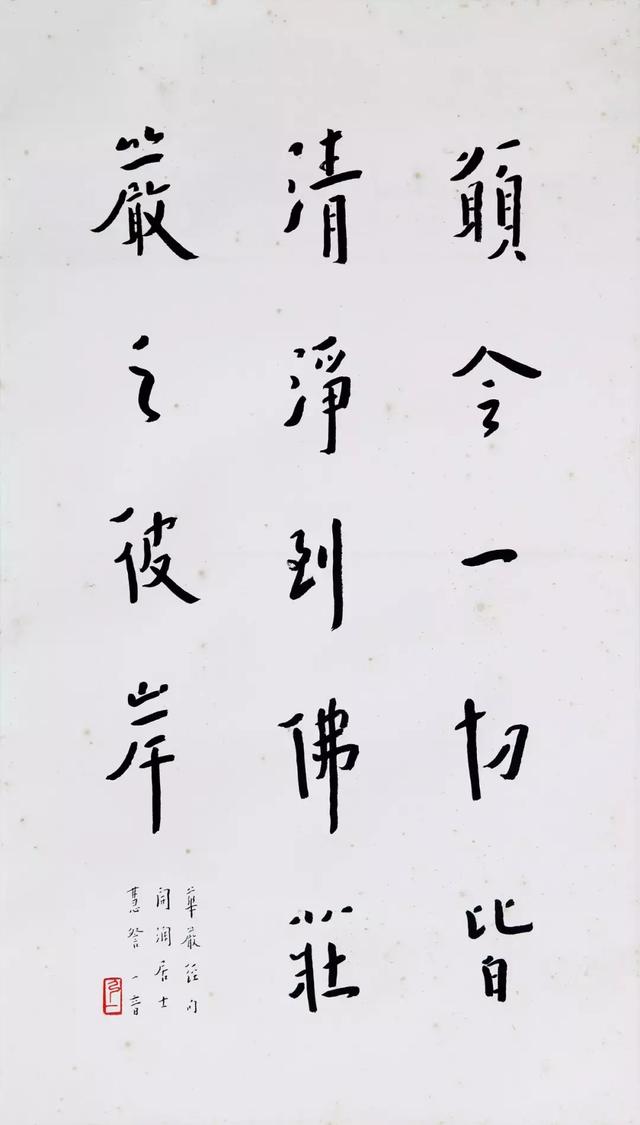 願令一切皆
清淨到佛莊
嚴之彼岸
華嚴經句
開潤居士
慧詧 一音